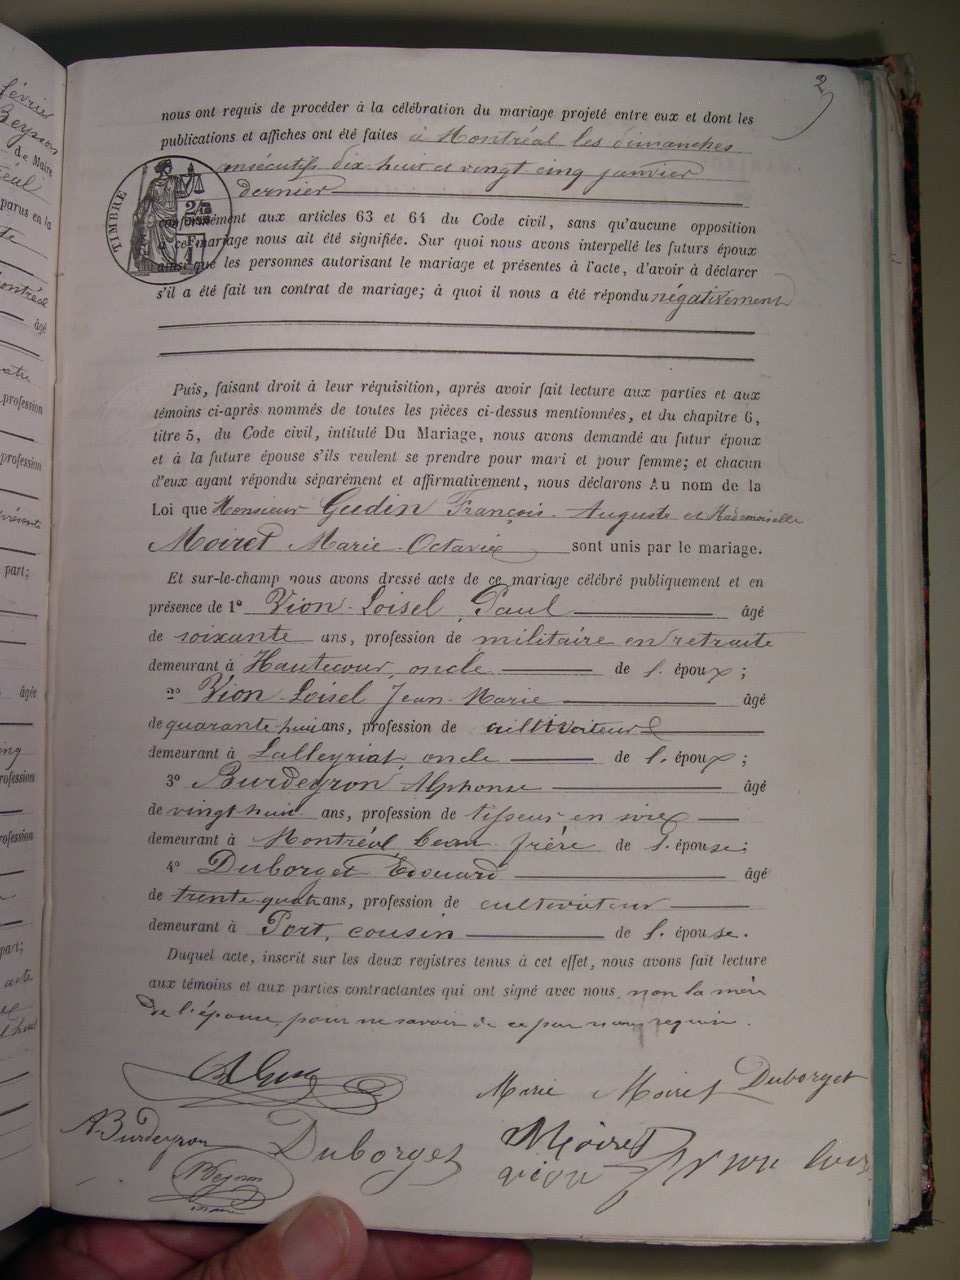 2
nous ont requis de procéder à la célébration du mariage projeté entre eux et dont les
publications et affiches ont été faites à Montréal les dimanches
consécutifs dix huit et vingt cinq janvier
dernier
TIMBRE
conformément aux articles 63 et 64 du Code civil, sans qu'aucune opposition
à ce mariage nous ait été signifiée. Sur quoi nous avons interpellé les futurs époux
ainsi que les personnes autorisant le mariage et présentes à l'acte, d'avoir à déclarer
s'il a été fait un contrat de mariage; à quoi il nous a été répondu négativement
Puis, faisant droit à leur réquisition, après avoir fait lecture aux parties et aux
témoins ci-après nommés de toutes les pièces ci-dessus mentionnées, et du chapitre 6,
titre 5, du Code civil, intitulé Du Mariage, nous avons demandé au futur époux
et à la future épouse s'ils veulent se prendre pour mari et pour femme; et chacun
d'eux ayant répondu séparément et affirmativement, nous déclarons Au nom de la
Loi que Monsieur Gudin François Auguste et Mademoiselle
Moiret Marie Octavie sont unis par le mariage.
Et sur-le-champ nous avons dressé acts de ce mariage célébré publiquement et en
présence de 1º Vion-Loisel Paul âgé
de soixante ans, profession de militaire en retraite
demeurant à Hautecour, oncle de l'époux;
2º Vion-Loisel Jean-Marie âgé
de quarante huit ans, profession de cultivateur
demeurant à Lalleyriat, oncle de l'époux;
3º Burdeyron Alphonse âgé
de vingt huit ans, profession de tisseur en soie
demeurant à Montréal beau-frère de l'épouse;
4º Duborget Edouard âgé
de trente quatre ans, profession de cultivateur
demeurant à Port, cousin de l'épouse.
Duquel acte, inscrit sur les deux registres tenus à cet effet, nous avons fait lecture
aux témoins et aux parties contractantes qui ont signé avec nous, non la mère
de l'épouse, pour ne savoir de ce par nous requise.
Marie Moiret Duborget
A. Burdeyron Duborget Moiret
Vion